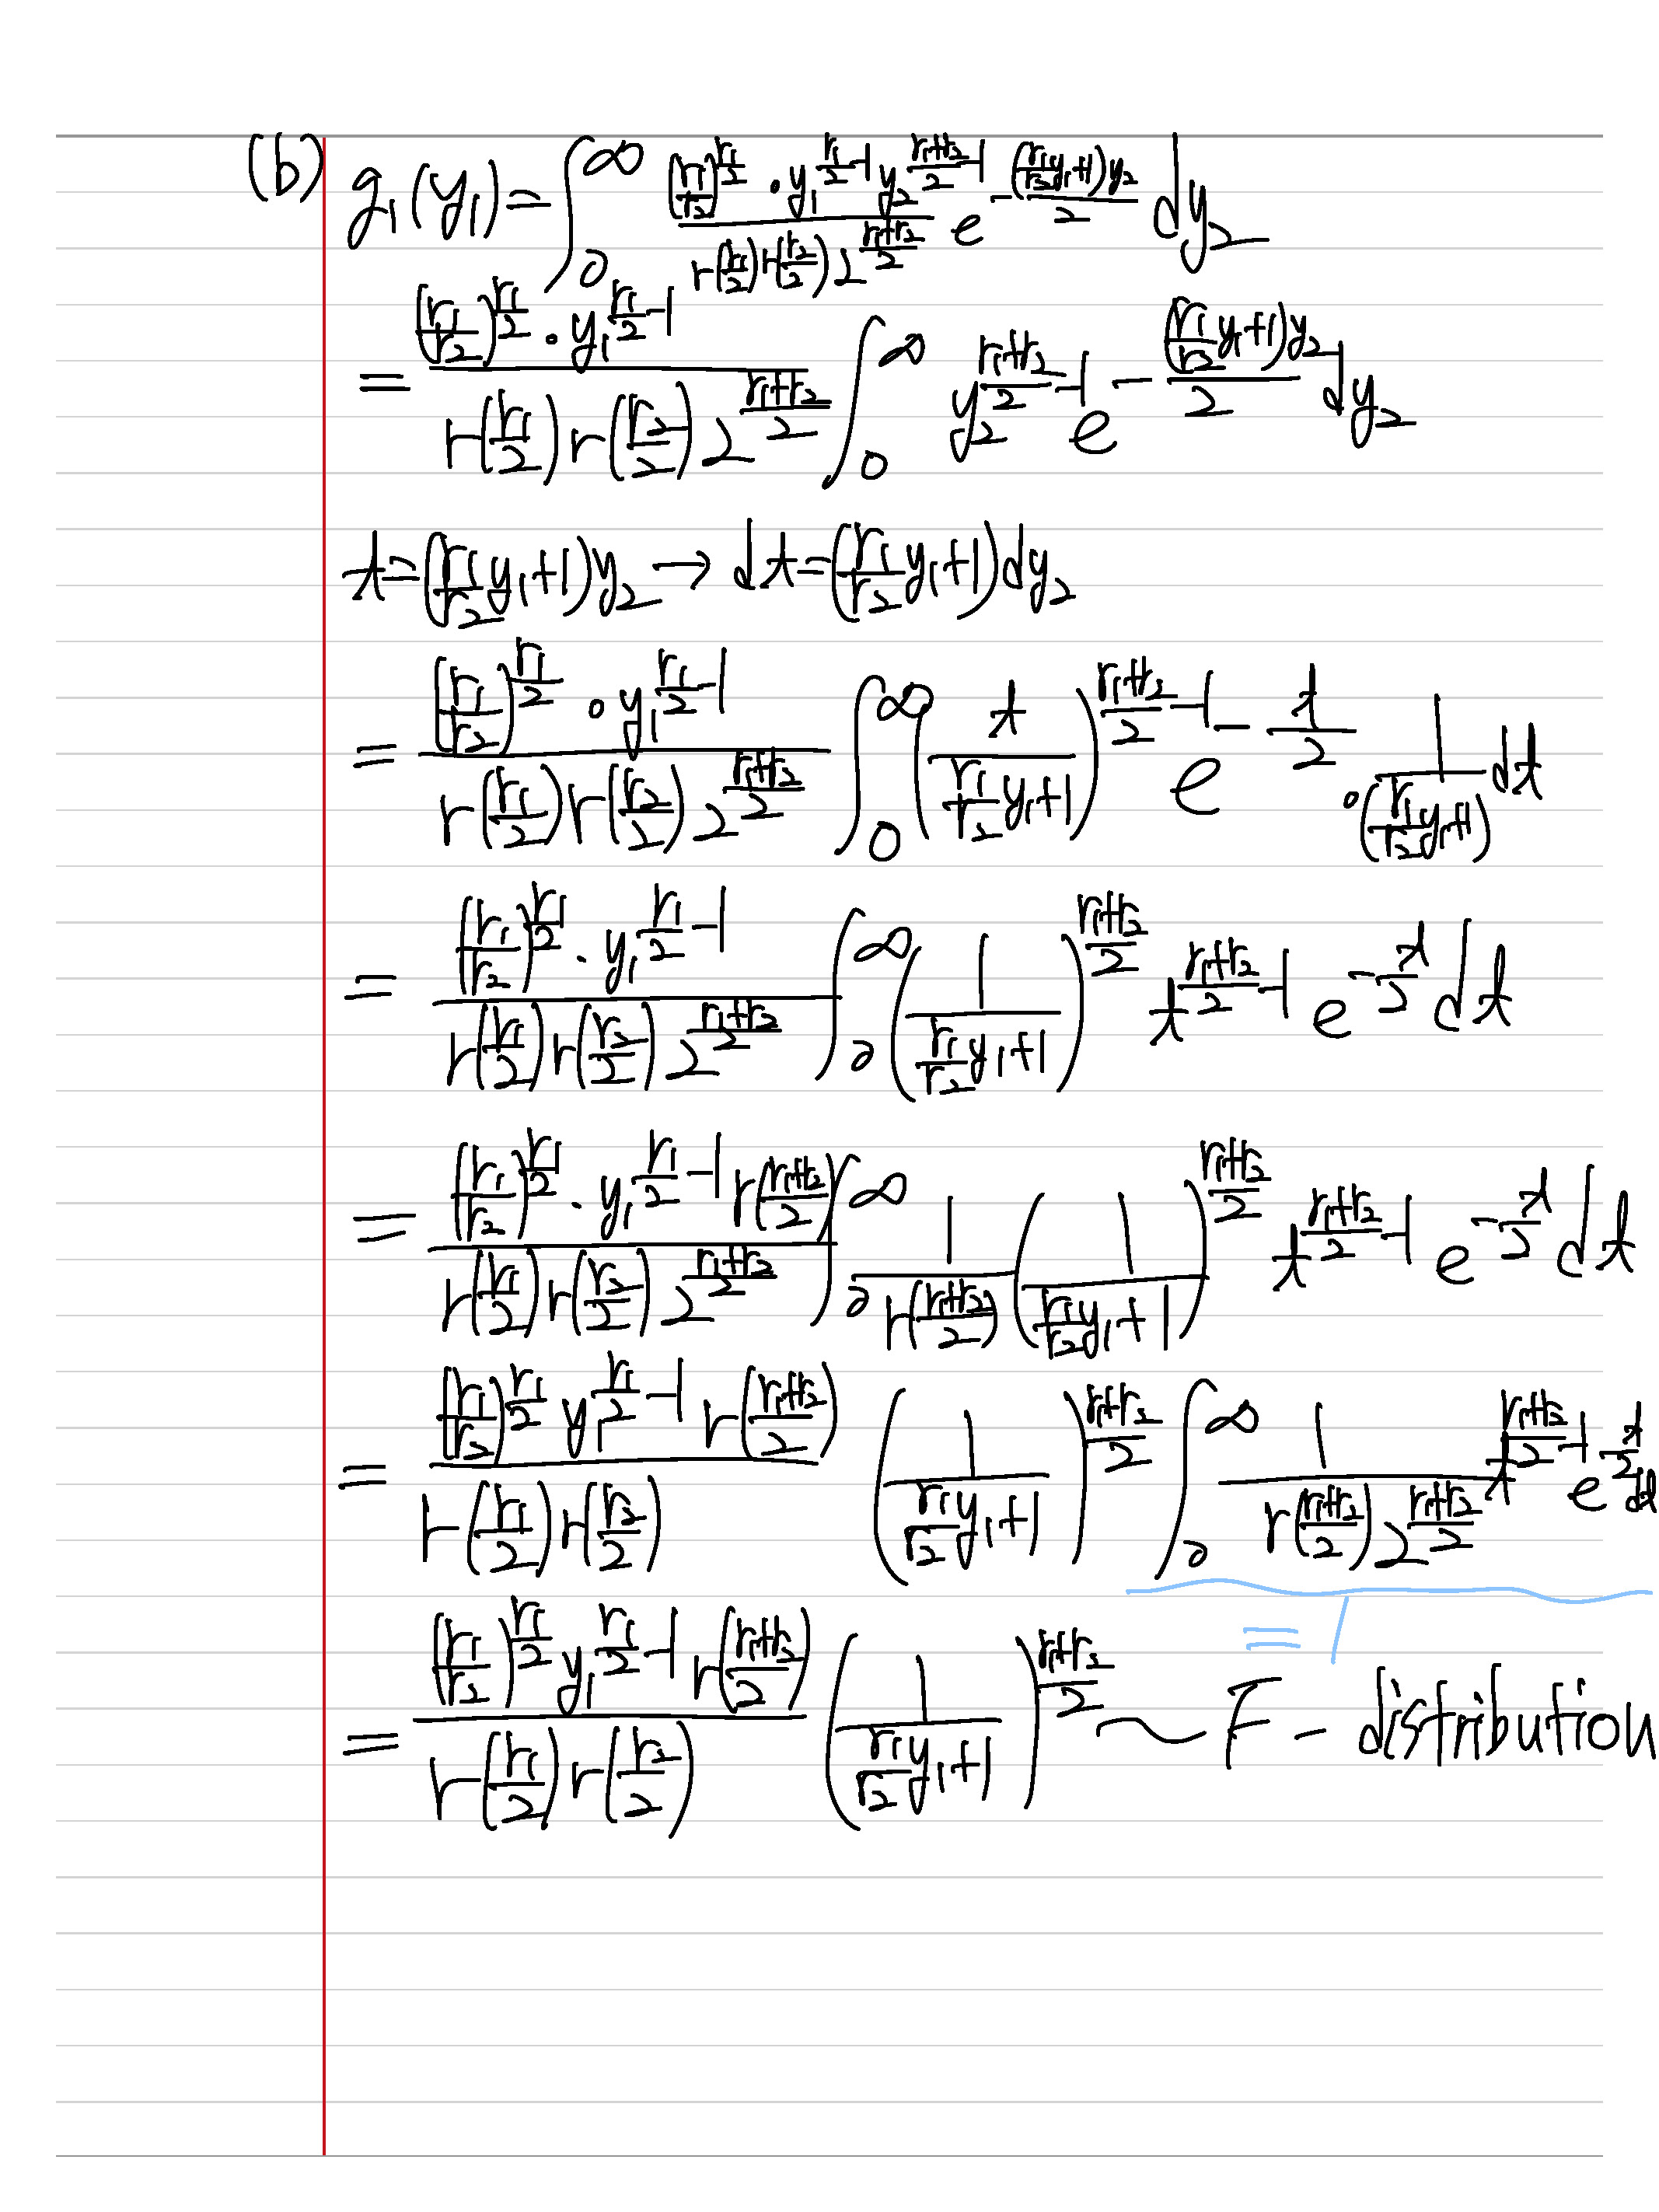 (b) g₁(y₁) = ∫₀^∞ \frac{(\frac{r₁}{r₂})^{\frac{r₁}{2}} · y₁^{\frac{r₁}{2}-1} y₂^{\frac{r₁+r₂}{2}-1}}{Γ(\frac{r₁}{2}) Γ(\frac{r₂}{2}) 2^{\frac{r₁+r₂}{2}}} e^{-\frac{(\frac{r₁}{r₂}y₁+1)y₂}{2}} dy₂
= \frac{(\frac{r₁}{r₂})^{\frac{r₁}{2}} · y₁^{\frac{r₁}{2}-1}}{Γ(\frac{r₁}{2}) Γ(\frac{r₂}{2}) 2^{\frac{r₁+r₂}{2}}} ∫₀^∞ y₂^{\frac{r₁+r₂}{2}-1} e^{-\frac{(\frac{r₁}{r₂}y₁+1)y₂}{2}} dy₂
t = (\frac{r₁}{r₂}y₁+1)y₂ → dt = (\frac{r₁}{r₂}y₁+1)dy₂
= \frac{(\frac{r₁}{r₂})^{\frac{r₁}{2}} · y₁^{\frac{r₁}{2}-1}}{Γ(\frac{r₁}{2}) Γ(\frac{r₂}{2}) 2^{\frac{r₁+r₂}{2}}} ∫₀^∞ (\frac{t}{\frac{r₁}{r₂}y₁+1})^{\frac{r₁+r₂}{2}-1} e^{-\frac{t}{2}} · \frac{1}{(\frac{r₁}{r₂}y₁+1)} dt
= \frac{(\frac{r₁}{r₂})^{\frac{r₁}{2}} · y₁^{\frac{r₁}{2}-1}}{Γ(\frac{r₁}{2}) Γ(\frac{r₂}{2}) 2^{\frac{r₁+r₂}{2}}} ∫₀^∞ (\frac{1}{\frac{r₁}{r₂}y₁+1})^{\frac{r₁+r₂}{2}} t^{\frac{r₁+r₂}{2}-1} e^{-\frac{t}{2}} dt
= \frac{(\frac{r₁}{r₂})^{\frac{r₁}{2}} · y₁^{\frac{r₁}{2}-1} Γ(\frac{r₁+r₂}{2})}{Γ(\frac{r₁}{2}) Γ(\frac{r₂}{2}) 2^{\frac{r₁+r₂}{2}}} ∫₀^∞ \frac{1}{Γ(\frac{r₁+r₂}{2})} (\frac{1}{\frac{r₁}{r₂}y₁+1})^{\frac{r₁+r₂}{2}} t^{\frac{r₁+r₂}{2}-1} e^{-\frac{t}{2}} dt
= \frac{(\frac{r₁}{r₂})^{\frac{r₁}{2}} y₁^{\frac{r₁}{2}-1} Γ(\frac{r₁+r₂}{2})}{Γ(\frac{r₁}{2}) Γ(\frac{r₂}{2})} (\frac{1}{\frac{r₁}{r₂}y₁+1})^{\frac{r₁+r₂}{2}} ∫₀^∞ \frac{1}{Γ(\frac{r₁+r₂}{2}) 2^{\frac{r₁+r₂}{2}}} t^{\frac{r₁+r₂}{2}-1} e^{-\frac{t}{2}} dt
= 1
= \frac{(\frac{r₁}{r₂})^{\frac{r₁}{2}} y₁^{\frac{r₁}{2}-1} Γ(\frac{r₁+r₂}{2})}{Γ(\frac{r₁}{2}) Γ(\frac{r₂}{2})} (\frac{1}{\frac{r₁}{r₂}y₁+1})^{\frac{r₁+r₂}{2}} ~ F - distribution